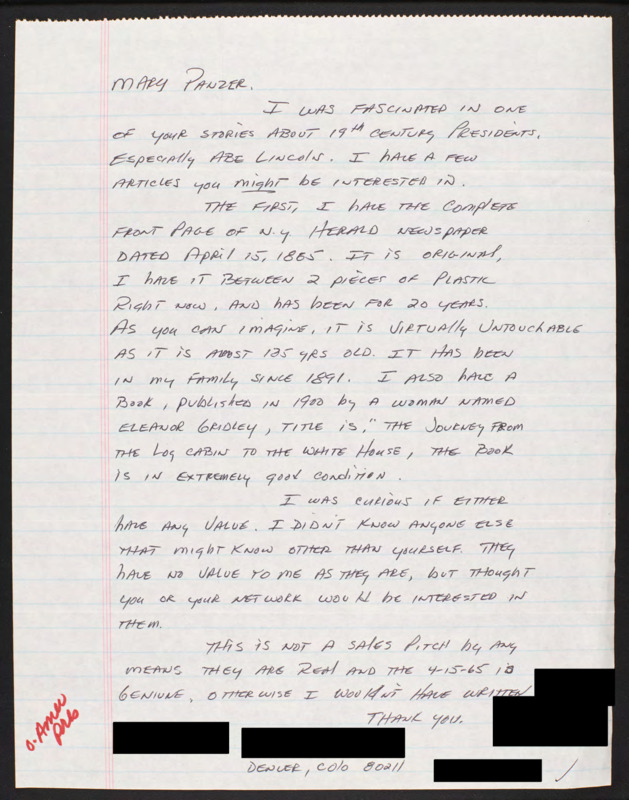 MARY PANZER.
I WAS FASCINATED IN ONE
OF YOUR STORIES ABOUT 19TH CENTURY PRESIDENTS.
ESPECIALLY ABE LINCOLN. I HAVE A FEW
ARTICLES YOU might BE INTERESTED IN.
THE FIRST, I HAVE THE COMPLETE
FRONT PAGE OF N.Y HERALD NEWSPAPER
DATED APRIL 15, 1865. IT IS ORIGINAL,
I HAVE IT BETWEEN 2 PIECES OF PLASTIC
RIGHT NOW, AND HAS BEEN FOR 20 YEARS.
AS YOU CAN IMAGINE, IT IS VIRTUALLY UNTOUCHABLE
AS IT IS ALMOST 135 YRS OLD. IT HAS BEEN
IN MY FAMILY SINCE 1891. I ALSO HAVE A
BOOK, PUBLISHED IN 1900 BY A WOMAN NAMED
ELEANOR GRIDLEY, TITLE IS," THE JOURNEY FROM
THE LOG CABIN TO THE WHITE HOUSE, THE BOOK
IS IN EXTREMELY GOOD CONDITION.
I WAS CURIOUS IF EITHER
HAVE ANY VALUE. I DIDN'T KNOW ANYONE ELSE
THAT MIGHT KNOW OTHER THAN YOURSELF. THEY
HAVE NO VALUE TO ME AS THEY ARE, BUT THOUGHT
YOU OR YOUR NETWORK WOULD BE INTERESTED IN
THEM.
THIS IS NOT A SALES PITCH BY ANY
MEANS THEY ARE REAL AND THE 4-15-65 IS
GENIUNE, OTHERWISE I WOULDN'T HAVE WRITTEN
THANK YOU.
DENVER, COLO 80211